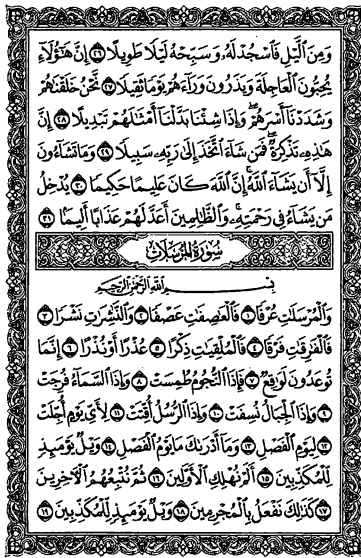 وَمِنَ ٱلَّيْلِ فَٱسْجُدْ لَهُۥ وَسَبِّحْهُ لَيْلًا طَوِيلًا ٢٦ إِنَّ هَٰٓؤُلَآءِ
يُحِبُّونَ ٱلْعَاجِلَةَ وَيَذَرُونَ وَرَآءَهُمْ يَوْمًا ثَقِيلًا ٢٧ نَّحْنُ خَلَقْنَٰهُمْ
وَشَدَدْنَآ أَسْرَهُمْ ۖ وَإِذَا شِئْنَا بَدَّلْنَآ أَمْثَٰلَهُمْ تَبْدِيلًا ٢٨ إِنَّ
هَٰذِهِۦ تَذْكِرَةٌ ۖ فَمَن شَآءَ ٱتَّخَذَ إِلَىٰ رَبِّهِۦ سَبِيلًا ٢٩ وَمَا تَشَآءُونَ
إِلَّآ أَن يَشَآءَ ٱللَّهُ ۚ إِنَّ ٱللَّهَ كَانَ عَلِيمًا حَكِيمًا ٣٠ يُدْخِلُ
مَن يَشَآءُ فِى رَحْمَتِهِۦ ۚ وَٱلظَّٰلِمِينَ أَعَدَّ لَهُمْ عَذَابًا أَلِيمًۢا ٣١
سُورَةُ المُرْسَلَات
بِسْمِ ٱللَّهِ ٱلرَّحْمَٰنِ ٱلرَّحِيمِ
وَٱلْمُرْسَلَٰتِ عُرْفًا ١ فَٱلْعَٰصِفَٰتِ عَصْفًا ٢ وَٱلنَّٰشِرَٰتِ نَشْرًا ٣
فَٱلْفَٰرِقَٰتِ فَرْقًا ٤ فَٱلْمُلْقِيَٰتِ ذِكْرًا ٥ عُذْرًا أَوْ نُذْرًا ٦ إِنَّمَا
تُوعَدُونَ لَوَٰقِعٌ ٧ فَإِذَا ٱلنُّجُومُ طُمِسَتْ ٨ وَإِذَا ٱلسَّمَآءُ فُرِجَتْ
٩ وَإِذَا ٱلْجِبَالُ نُسِفَتْ ١٠ وَإِذَا ٱلرُّسُلُ أُقِّتَتْ ١١ لِأَىِّ يَوْمٍ أُجِّلَتْ
١٢ لِيَوْمِ ٱلْفَصْلِ ١٣ وَمَآ أَدْرَىٰكَ مَا يَوْمُ ٱلْفَصْلِ ١٤ وَيْلٌ يَوْمَئِذٍ
لِّلْمُكَذِّبِينَ ١٥ أَلَمْ نُهْلِكِ ٱلْأَوَّلِينَ ١٦ ثُمَّ نُتْبِعُهُمُ ٱلْءَاخِرِينَ
١٧ كَذَٰلِكَ نَفْعَلُ بِٱلْمُجْرِمِينَ ١٨ وَيْلٌ يَوْمَئِذٍ لِّلْمُكَذِّبِينَ ١٩